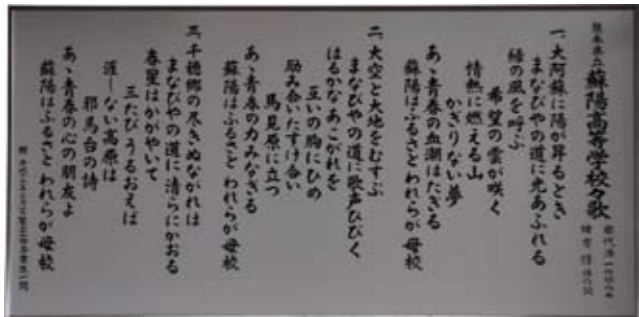 熊本県立 蘇陽高等学校々歌
一、大阿蘇に陽が昇るとき
まなびやの道に光あふれる
緑の風を呼ぶ
希望の雲が咲く
情熱に燃える山
かぎりない夢
あゝ青春の血潮はたぎる
蘇陽はふるさと われらが母校
二、大空と大地をむすぶ
まなびやの道に歌声ひびく
はるかなあこがれを
互いの胸にひめ
励み合いたすけ合い
馬見原に立つ
あゝ青春の力みなぎる
蘇陽はふるさと われらが母校
三、千穂郷の尽きぬながれは
まなびやの道に清らにかおる
春星はかがやいて
三たびうるおえば
涯しない高原は
邪馬台の詩
あゝ青春の心の朋友よ
蘇陽はふるさと われらが母校